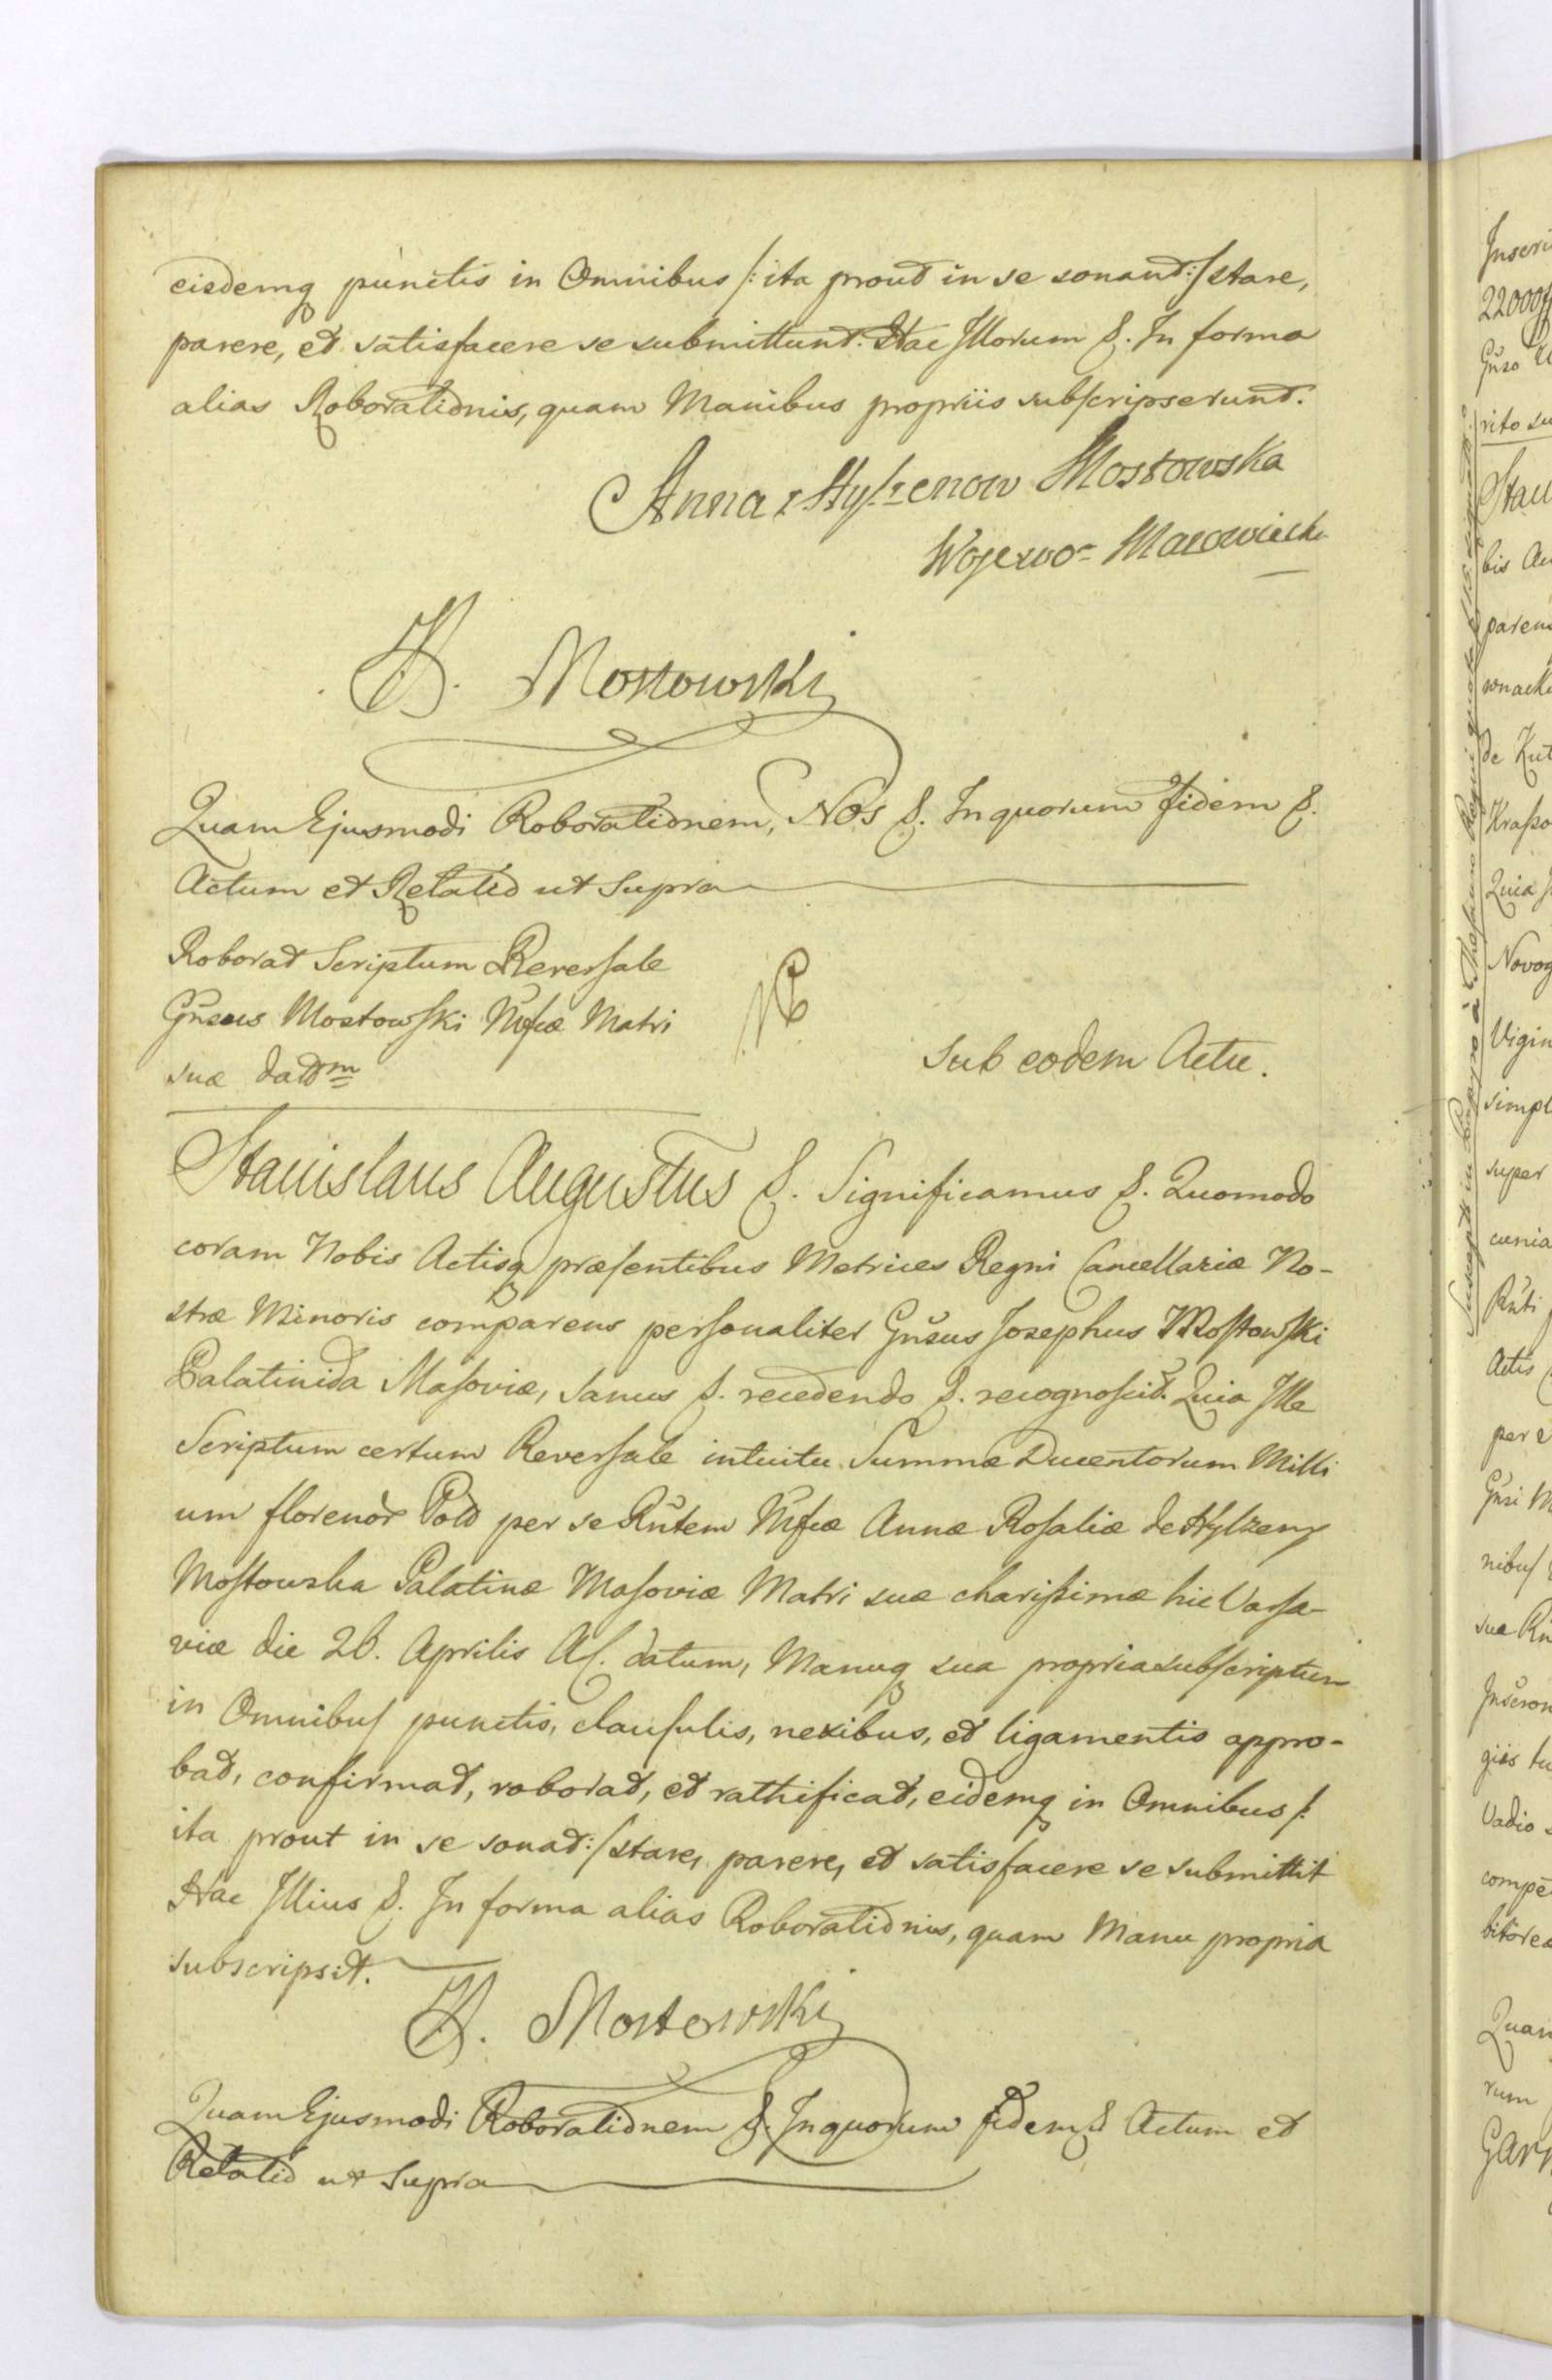 eisdemq punctis in Omnibus /: ita prout in se sonant:/ stare,
parere, et satisfacere se submittunt. Hac Illorum &. In forma
alias Roborationis, quam Manibus propriis subscripserunt.
Anna z Hylzenow Mostowska
Wojewo- Mazowiecka
Mostowski
Quam Ejusmodi Roborationem, Nos &. In quorum fidem &.
Actum et Relatio ut Supra
Roborat Scriptum Reversale
Gnsus Mostowski Mfcæ Matri
suæ datum
Sub eodem Actu.
Stanislaus Augustus &. Significamus &. Quomodo
coram Nobis Actisq præsentibus Metrices Regni Cancellariæ No-
stræ Minoris comparens personaliter Gnsus Josephus Mostowski
Palatinida Masoviæ, sanus &. recedendo &. recognoscit. Quia Ille
Scriptum certum Reversale intuitu Summæ Ducentorum Milli
um florenor Pol per se Rntem Mfcæ Annæ Rosaliæ de Hylzeny
Mostowska Palatinæ Masoviæ Matri suæ charissimæ hic Varsa-
viæ die 26. Aprilis A. C. datum, Manuq sua propria subscriptum
in Omnibus punctis, clausulis, nexibus, et ligamentis appro-
bat, confirmat, roborat, et rathificat, eidemq in Omnibus /:
ita prout in se sonat:/ stare, parere, et satisfacere se submittit
Hac Illius &. In forma alias Roborationis, quam Manu propria
subscripsit.
Mostowski
Quam Ejusmodi Roborationem &. In quorum fidem & Actum et
Relatio ut Supra